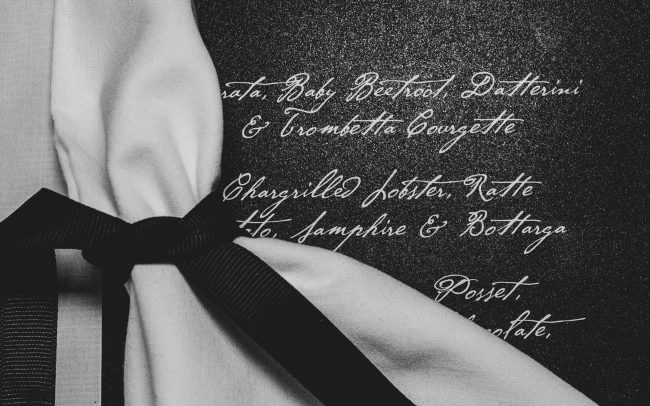 rata, Baby Beetroot, Datterini
& Trombetta Courgette
Chargrilled Lobster, Ratte
to, Samphire & Bottarga
Posset,
colate,